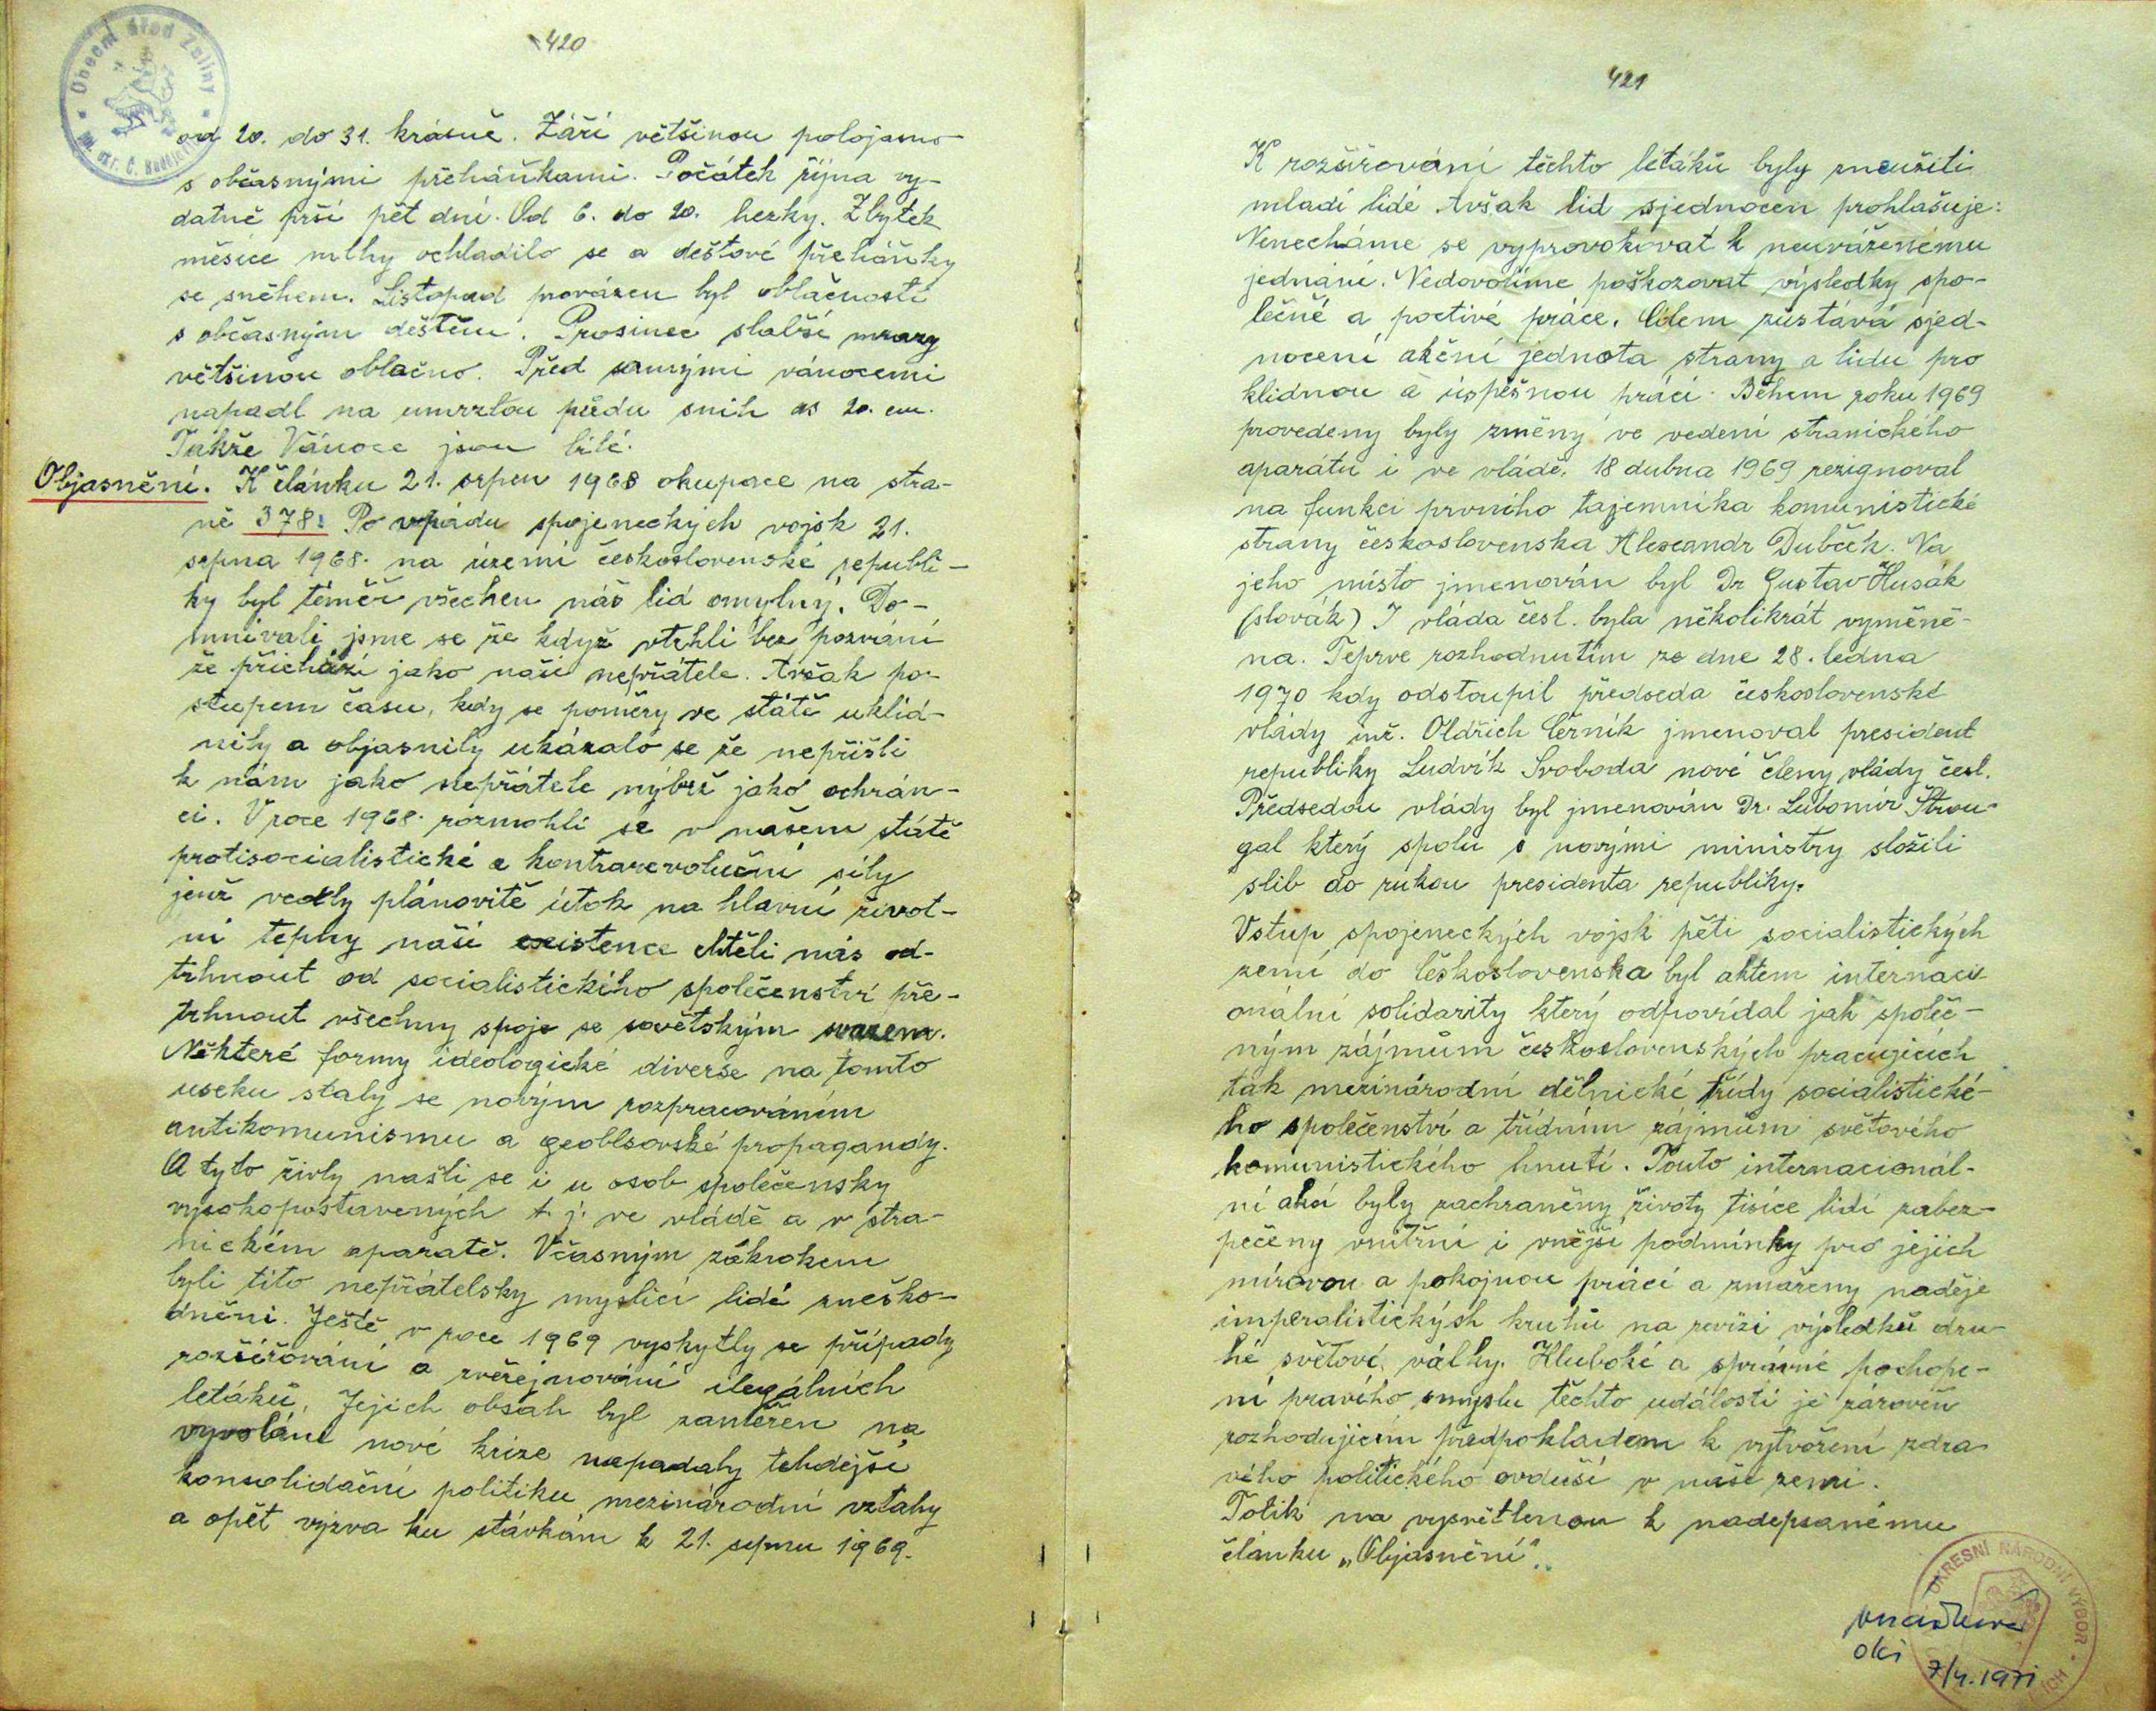 420
Obecní úřad Zaliny
okr. Č. Budějovice
od 20. do 31. krásně. Září většinou polojasno
s občasnými přeháňkami. Počátek října vy-
datně prší pět dní. Od 6. do 20. hezky. Zbytek
měsíce mlhy ochladilo se a dešťové přeháňky
se sněhem. Listopad provázen byl oblačností
s občasným deštěm. Prosinec slabší mrazy
většinou oblačno. Před samými vánocemi
napadl na umrzlou půdu snih as 20. cm.
Takže Vánoce jsou bílé.
Objasnění. K článku 21. srpen 1968 okupace na stra-
ně 378: Po vpádu spojeneckých vojsk 21.
srpna 1968. na území československé republi-
ky byl téměř všechen náš lid omylný. Do-
mnívali jsme se že když vtrhli bez pozvání
že přichází jako naši nepřátele. Avšak po-
stupem času, kdy se poměry ve státě uklid-
nily a objasnily ukázalo se že nepřišli
k nám jako nepřátele nýbrž jako ochrán-
ci. V roce 1968. rozmohli se v našem státě
protisocialistické a kontrarevoluční síly
jenž vedly plánovitě útok na hlavní život-
ní tepny naší existence chtěli nás od-
trhnout od socialistického společenství pře-
trhnout všechny spoje se sovětským svazem.
Některé formy ideologické diverse na tomto
useku staly se novým rozpracováním
antikomunismu a geoblsovské propagandy.
A tyto živly našli se i u osob společensky
vysokopostavených t. j. ve vládě a v stra-
nickém aparatě. Včasným zákrokem
byli tito nepřátelsky myslící lidé zneško-
dněni. Ještě v roce 1969 vyskytly se případy
rozšiřování a zveřejnování ilegálních
letáků. Jejich obsah byl zaměřen na
vyvolání nové krize napadaly tehdejší
konsolidační politiku mezinárodní vztahy
a opět výzva ku stávkám k 21. srpnu 1969.
421
K rozšiřování těchto letáků byly zneužiti
mladí lidé Avšak lid sjednocen prohlašuje:
Nenecháme se vyprovokovat k neuváženému
jednání. Nedovolíme poškozovat výsledky spo-
lečné a poctivé práce. Cílem zůstává sjed-
nocení akční jednota strany a lidu pro
klidnou a úspěšnou práci. Během roku 1969
provedeny byly změny ve vedení stranického
aparátu i ve vládě. 18 dubna 1969 rezignoval
na funkci prvního tajemníka komunistické
strany československa Alexandr Dubček. Na
jeho místo jmenován byl Dr Gustav Husák
(slovák) I vláda česl. byla několikrát vyměně-
na. Teprve rozhodnutím ze dne 28. ledna
1970 kdy odstoupil předseda československé
vlády inž. Oldřich Černík jmenoval president
republiky Ludvík Svoboda nové členy vlády česl.
Předsedou vlády byl jmenován Dr. Lubomír Štrou-
gal který spolu s novými ministry složili
slib do rukou presidenta republiky.
Vstup spojeneckých vojsk pěti socialistických
zemí do Československa byl aktem internaci-
onální solidarity který odpovídal jak společ-
ným zájmům československých pracujících
tak mezinárodní dělnické třídy socialistické-
ho společenství a třídním zájmům světového
komunistického hnutí. Touto internacionál-
ní akcí byly zachraněny životy tisíce lidí zabez-
pečeny vnitřní i vnější podmínky pro jejich
mírovou a pokojnou prácí a zmařeny naděje
imperalistických kruhů na revizi výsledků dru-
hé světové války. Hluboké a správné pochope-
ní pravého smyslu těchto událostí je zároveň
rozhodujícím předpokladem k vytvoření zdra-
vého politického ovduší v naše zemi.
Tolik na vysvětlenou k nadepsanému
článku „Objasnění".
OKRESNÍ NÁRODNÍ VÝBOR
7/4. 1971